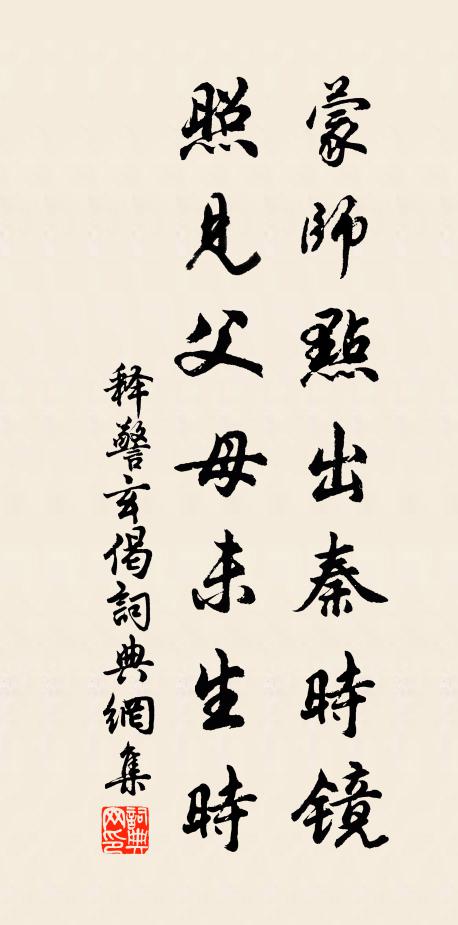 蒙師點出秦時鏡
照見父母未生時
释警玄偈詞典網集
詞典
网印